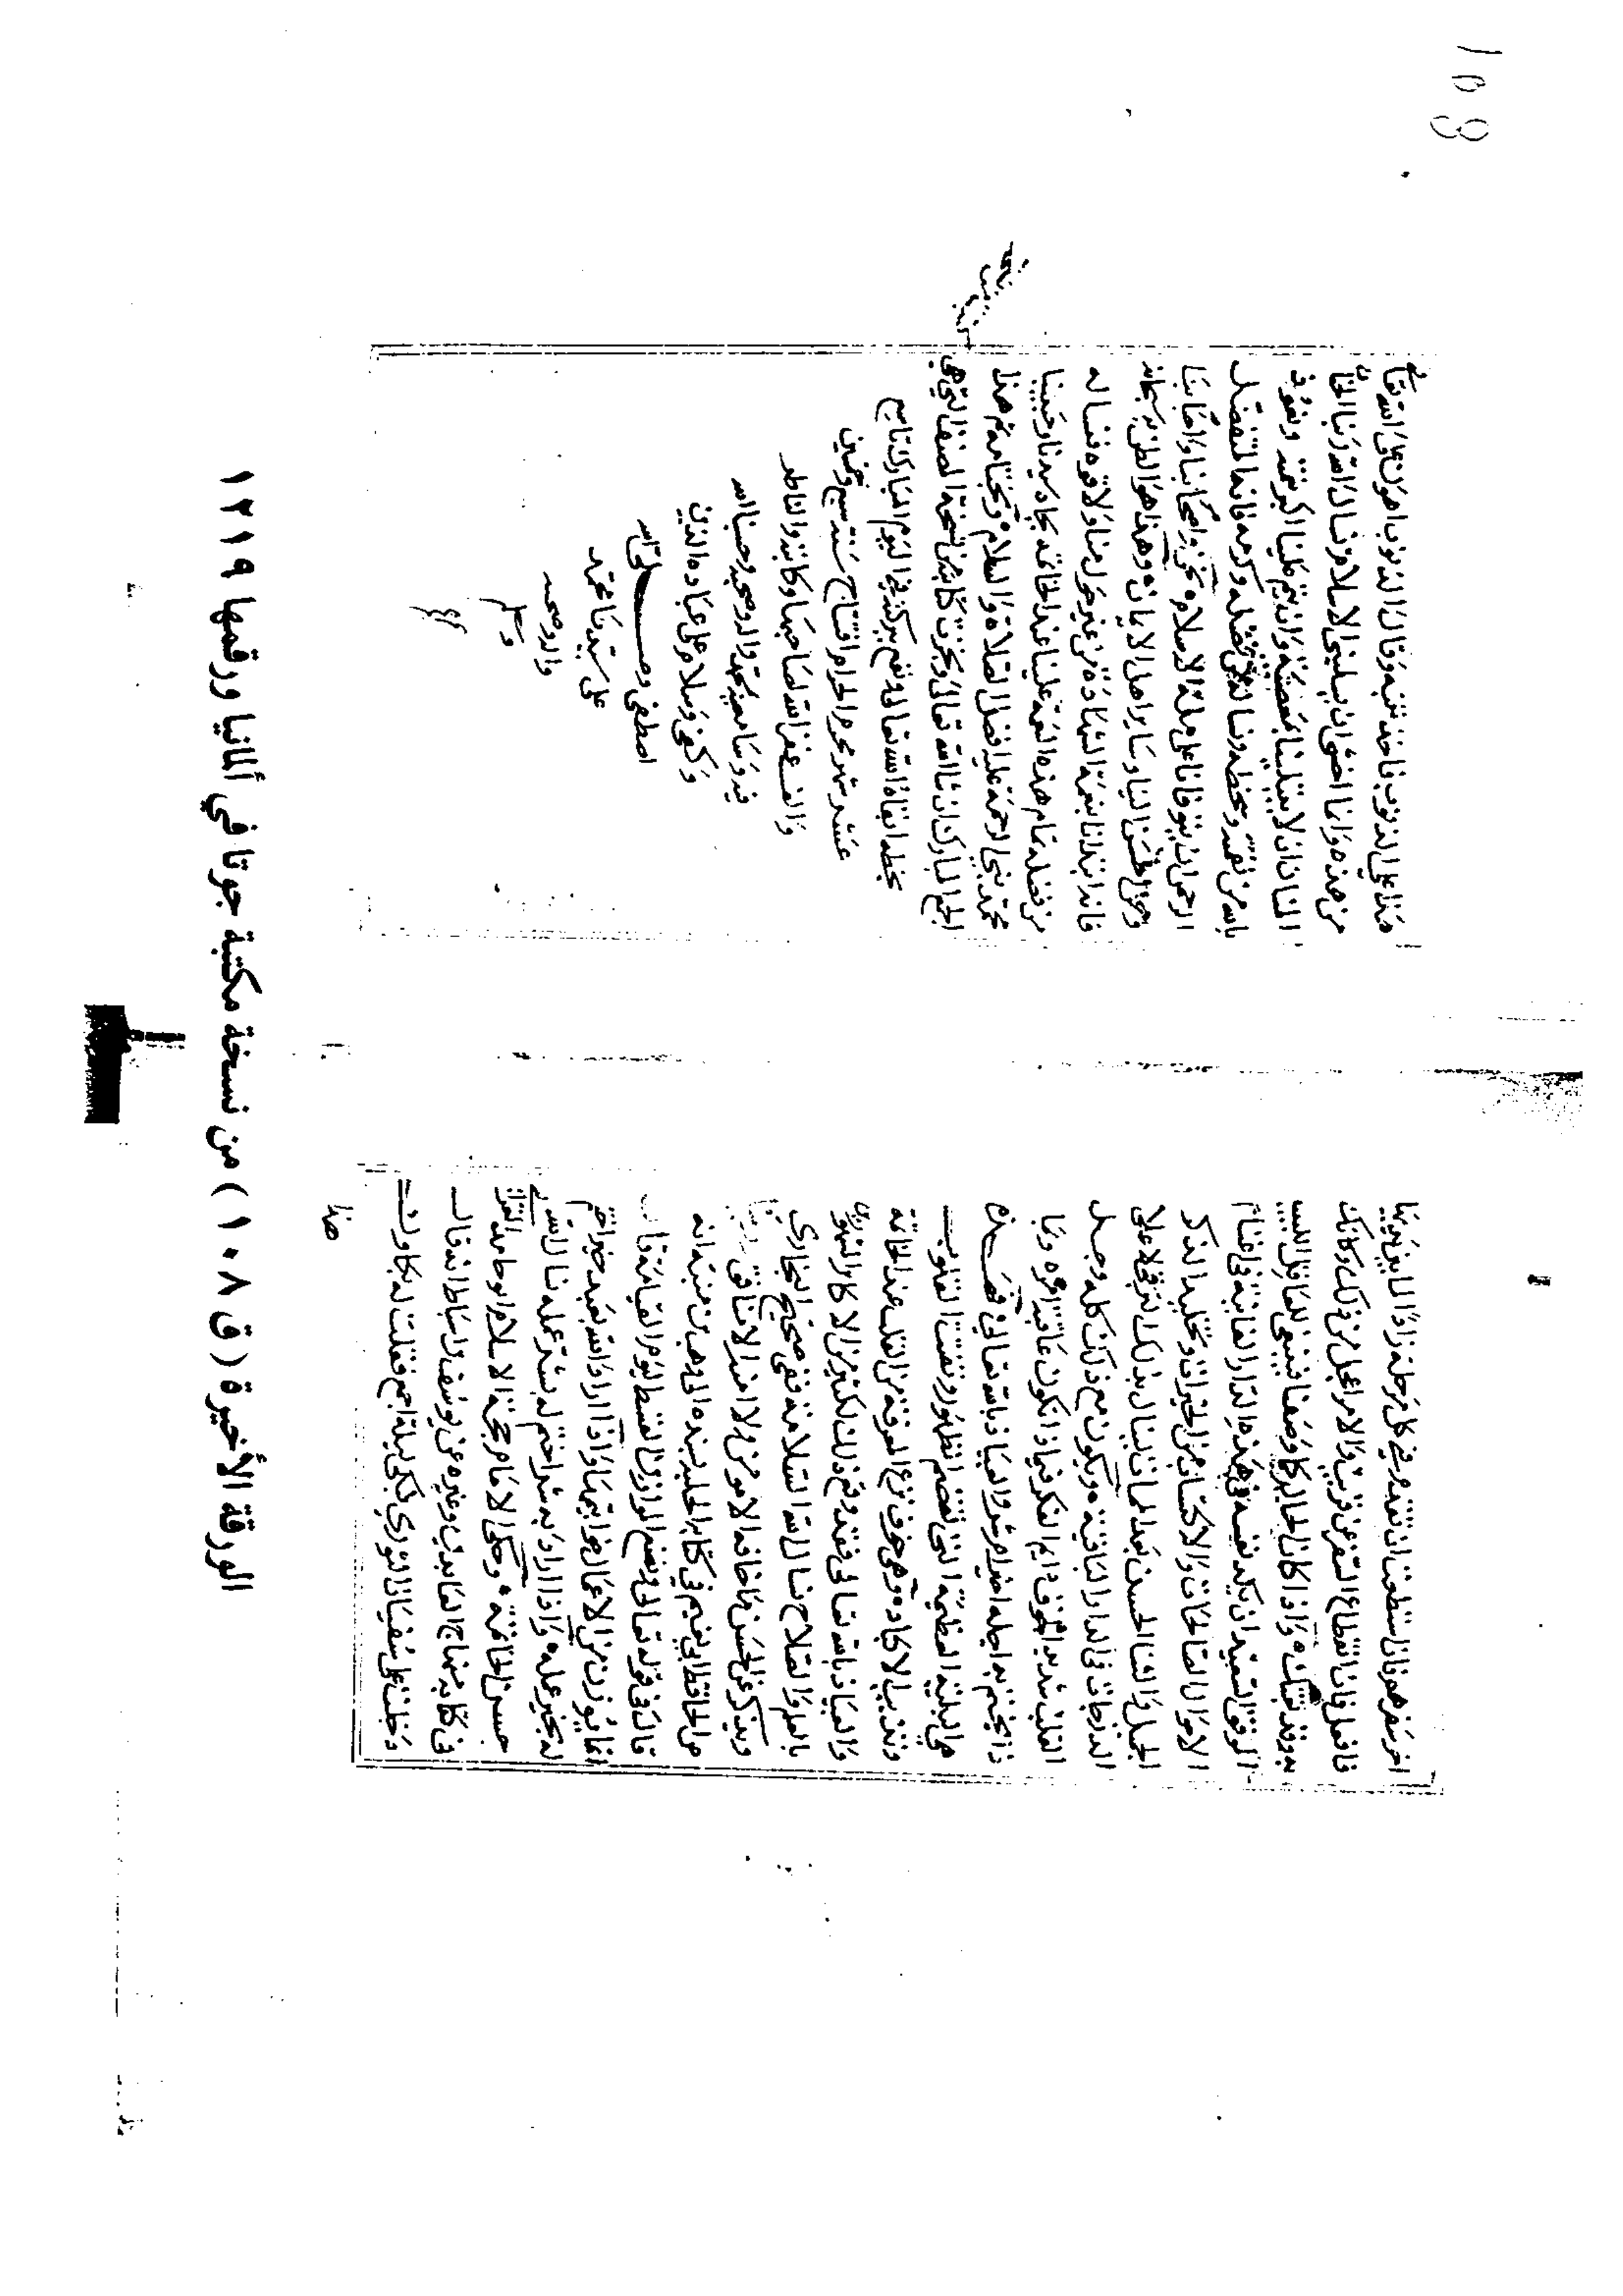 ١٥٩
اخر سفر هو فان استطعت ان تقدم في كل مرحلة زادًا لما بين يديها
فافعل فان انقطاع السفر عن قريب والامر اعجل من ذلك فكانك
به وقد بغتك واذا كان الحال كما وصفنا فينبغي للعاقل اللبيب
الموفق السعيد ان يكد نفسه في هذه الدار الفانية في اغتنام
الاحوال الصالحات والاكتساب من الخيرات وتخليد الذكر
الجميل والثنا الحسن بعد الممات لينال بذلك الترقي لاعلى
الدرجات في الدار الباقية ويكون مع ذلك كله وجل
القلب شديد الخوف دايم الفكر فيما ذا تكون عاقبة امره وما
ذا يختم به اجله اخير ام شر والعياذ بالله تعالى فهذه
هي البلية العظيمة التي تقصم الظهور وتفتت القلوب
وتذيب الاكباد وهي خوف نزع المعرفة من القلب عند الخاتمة
والعياذ بالله تعالى فقد وقع ذلك لكثير من الاكابر المشهورين
بالعلم والصلاح نسال الله السلامة ففي صحيح البخاري
ويذكر عن الحسن ما خافه الا مومن ولا امنه الا منافق
الحافظ ابي نعيم في كتابه الحلية بسنده الى وهب بن منبه انه
قال في قوله تعالى ونضع الموازين القسط ليوم القيامة قال
انما يوزن من الاعمال خواتيمها واذا اراد الله بعبد خيرا ختم
له بخير عمله واذا اراد به شرا ختم له بشر عمله نسال الله
حسن الخاتمة وحكى الامام حجة الاسلام ابو حامد الغزالي
في كتابه منهاج العابدين وغيره عن يوسف بن اسباط انه قال
دخلت على سفيان الثوري فبكى ليلة اجمع فقلت له بكاوك
هذا
هذا على الذنوب فاخذ تبنة وقال الذنوب اهون على الله تعالى
من هذه وانما اخشى ان يسلبني الاسلام نسال الله ربنا الحنان
المنان ان لا يبتلينا بمعصيته وان يتم علينا اكبر نعمته ونعوذ
بالله من نقمته وسخطه ونساله من فضله وكرمه فانه المتفضل
الرحمن ان يتوفانا على ملة الاسلام نحن واصحابنا واحبابنا
وسائر اهل الايمان وهذا هو الظن به سبحانه
فانه ابتدانا بنعمة الشهادة من غير حول منا ولا قوة فنساله
من فضله تمام هذه النعمة علينا عند الخاتمة بجاه سيدنا وحبيبنا
محمد نبي الرحمة عليه افضل الصلاة والسلام وبختامه تم هذا
الجمع المبارك ان شا الله تعالى وتحررت كتابة من نسخة المصنف التي هي
بخطه ابقاه الله تعالى ونفع ببركته في اليوم المبارك تاسع
عشر شهر محرم الحرام افتتاح سنة سبع وخمسين
والف غفر الله لصاحبها وكاتبه والناظر
فيه وسامعيه بمحمد واله وصحبه وحسبنا الله
وكفى وسلام على عباده الذين
اصطفى وصلى الله
على سيدنا محمد
واله وصحبه
وسلم
الورقة الأخيرة ( ق ١٠٨ ) من نسخة مكتبة جوتا في ألمانيا ورقمها ١٢١٩